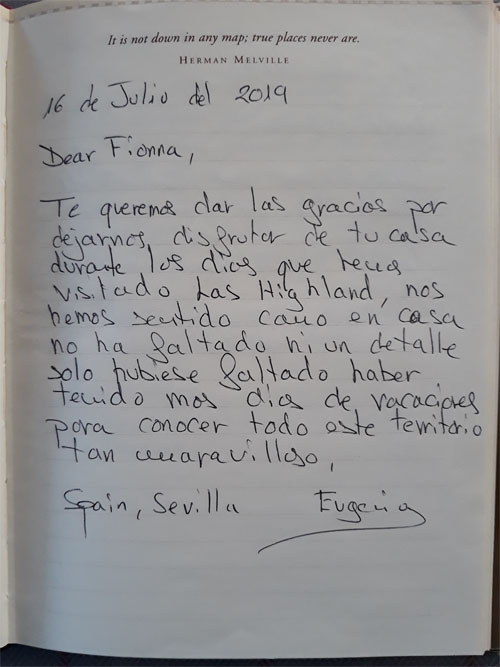 It is not down in any map; true places never are.
HERMAN MELVILLE
16 de Julio del 2019
Dear Fionna,
Te queremos dar las gracias por
dejarnos disfrutar de tu casa
durante los dias que hemos
visitado Las Highland, nos
hemos sentido como en casa
no ha faltado ni un detalle
solo hubiese faltado haber
tenido mas dias de vacaciones
para conocer todo este territorio
tan maravilloso,
Spain, Sevilla Eugenia